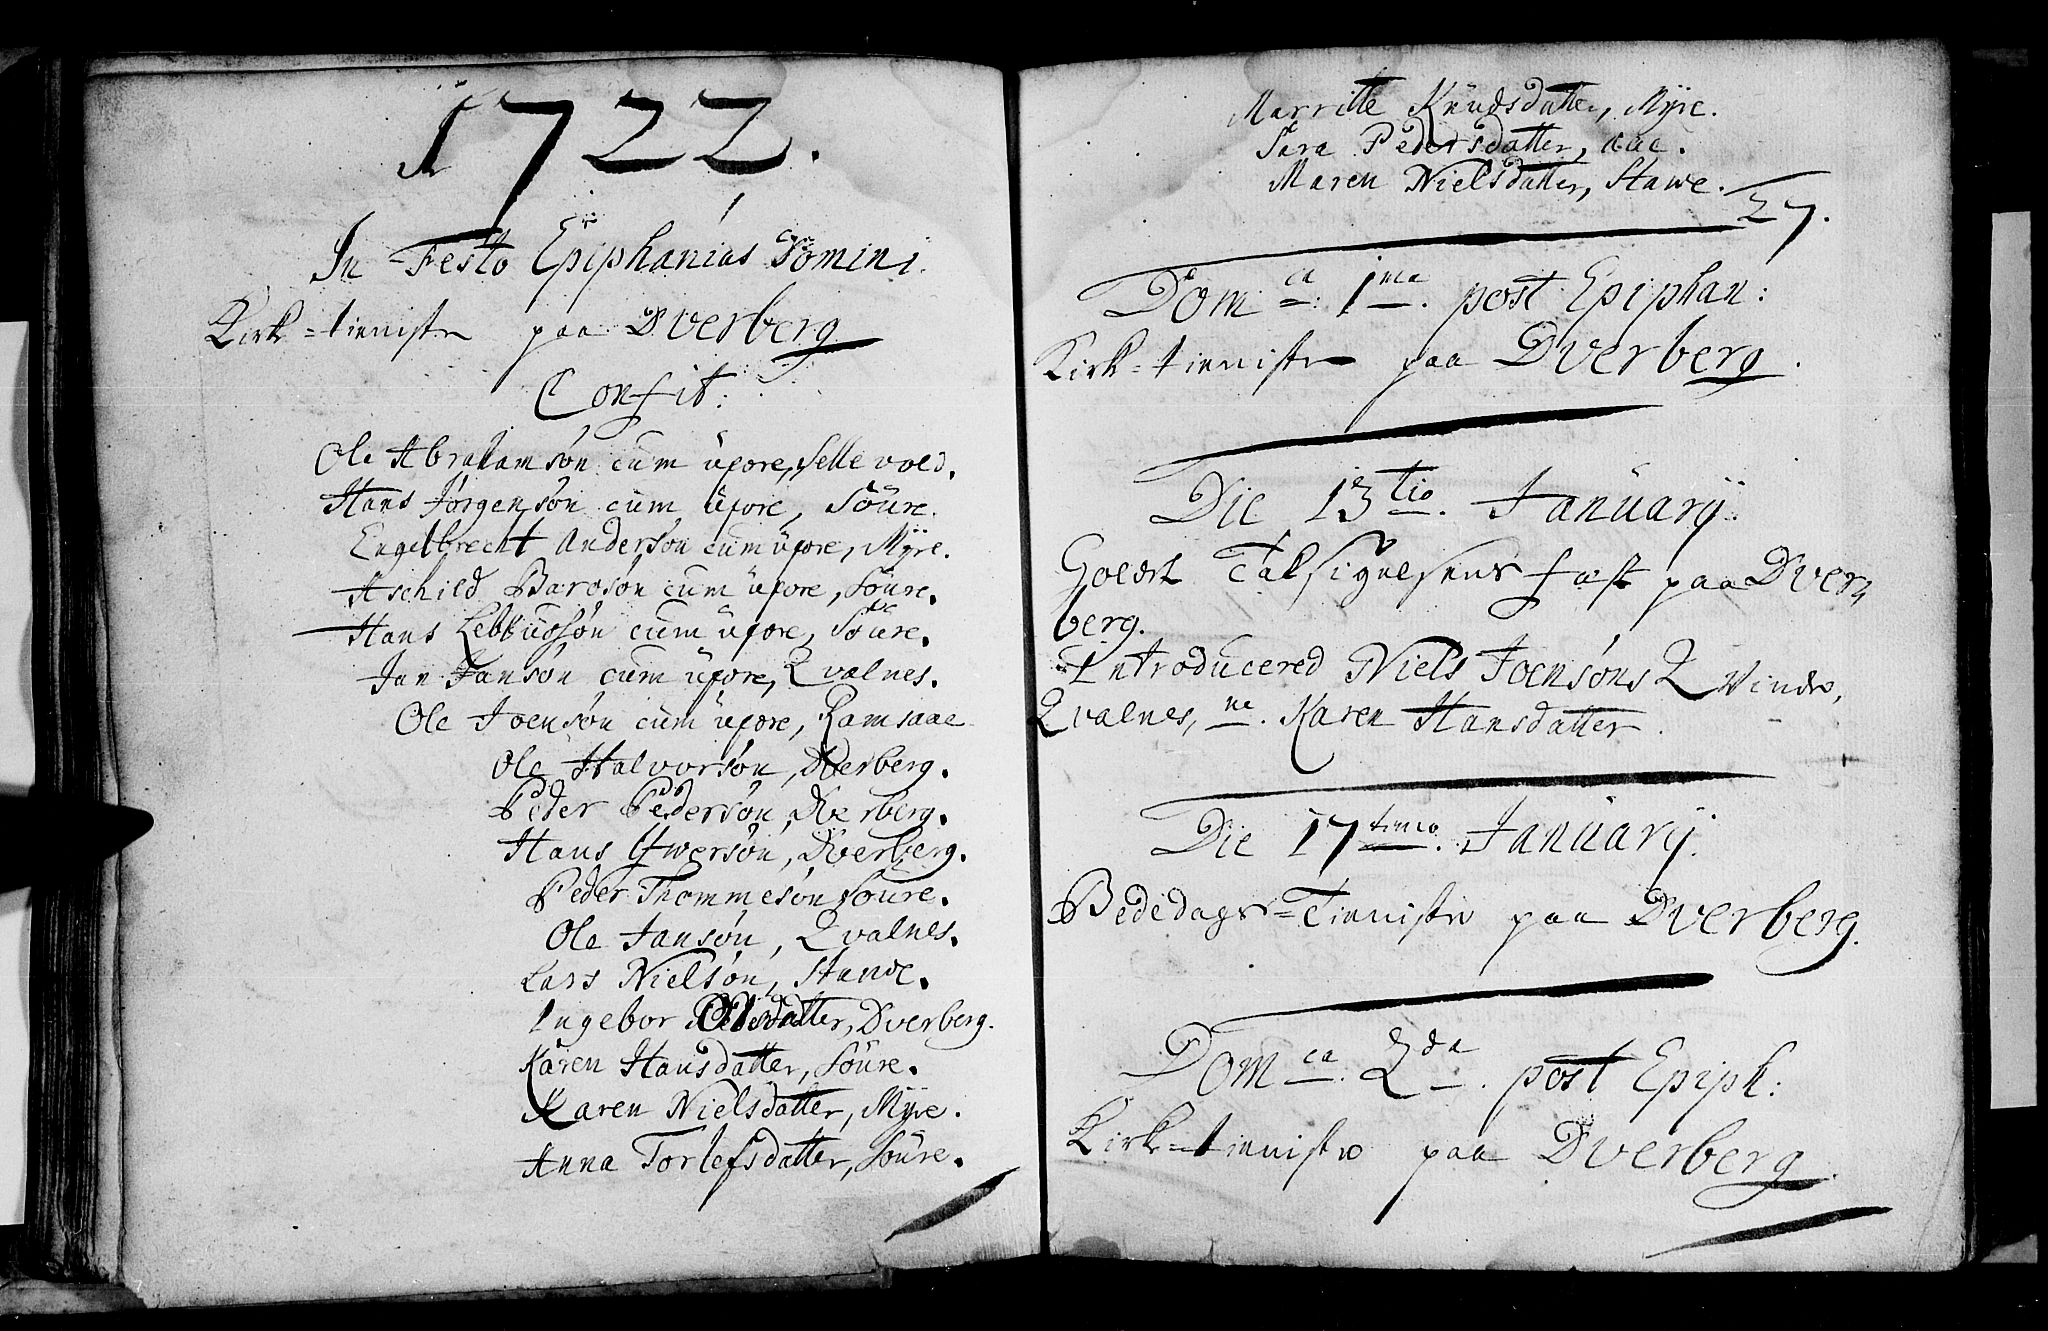 1722.
In Festo Epiphanias Domini.
Kirk-tieniste paa Dverberg
Confit:
Ole Abrahamsøn cum uxore, Sellevold.
Hans Jørgensøn cum uxore, Söure.
Engelbrecht Andersøn cum uxore, Mÿre.
Aschild Baroson cum uxore, Söure.
Hans cum uxore, Söure.
Jan Jansøn cum uxore, Qvalnes.
Ole Joensøn cum uxore, Ramsaae
Ole Halvorsøn, Dverberg.
Peder Pedersøn, Dverberg.
Hans Ifwersøn, Dverberg.
Peder Thommesøn Söure.
Ole Jansøn, Qvalnes.
Lars Nielsøn, Stawe.
Ingebor Olsdatter, Dverberg.
Karen Hansdatter, Söure.
Karen Nielsdatter, Mÿre.
Anna Torlefsdatter, Söure.
Marritte Knudsdatter, Mÿre.
Sara Pedersdatter, Aae.
Maren Nielsdatter, Stawe.
27.
Dom ca: 1ma. post Epiphan:
Kirk-tieniste paa Dverberg.
Die 13tio. Januarij.
Holdt Taksigelsens fæst paa Dver,
berg.
Introducered Niels Joensøns Qvinde,
Qvalnes, ne. Karen Hansdatter.
Die 17timo. Januarij.
Bededags-Tieniste paa Dverberg.
Dom ca. 2da. post Epiph:
Kirk-tieniste paa Dverberg.